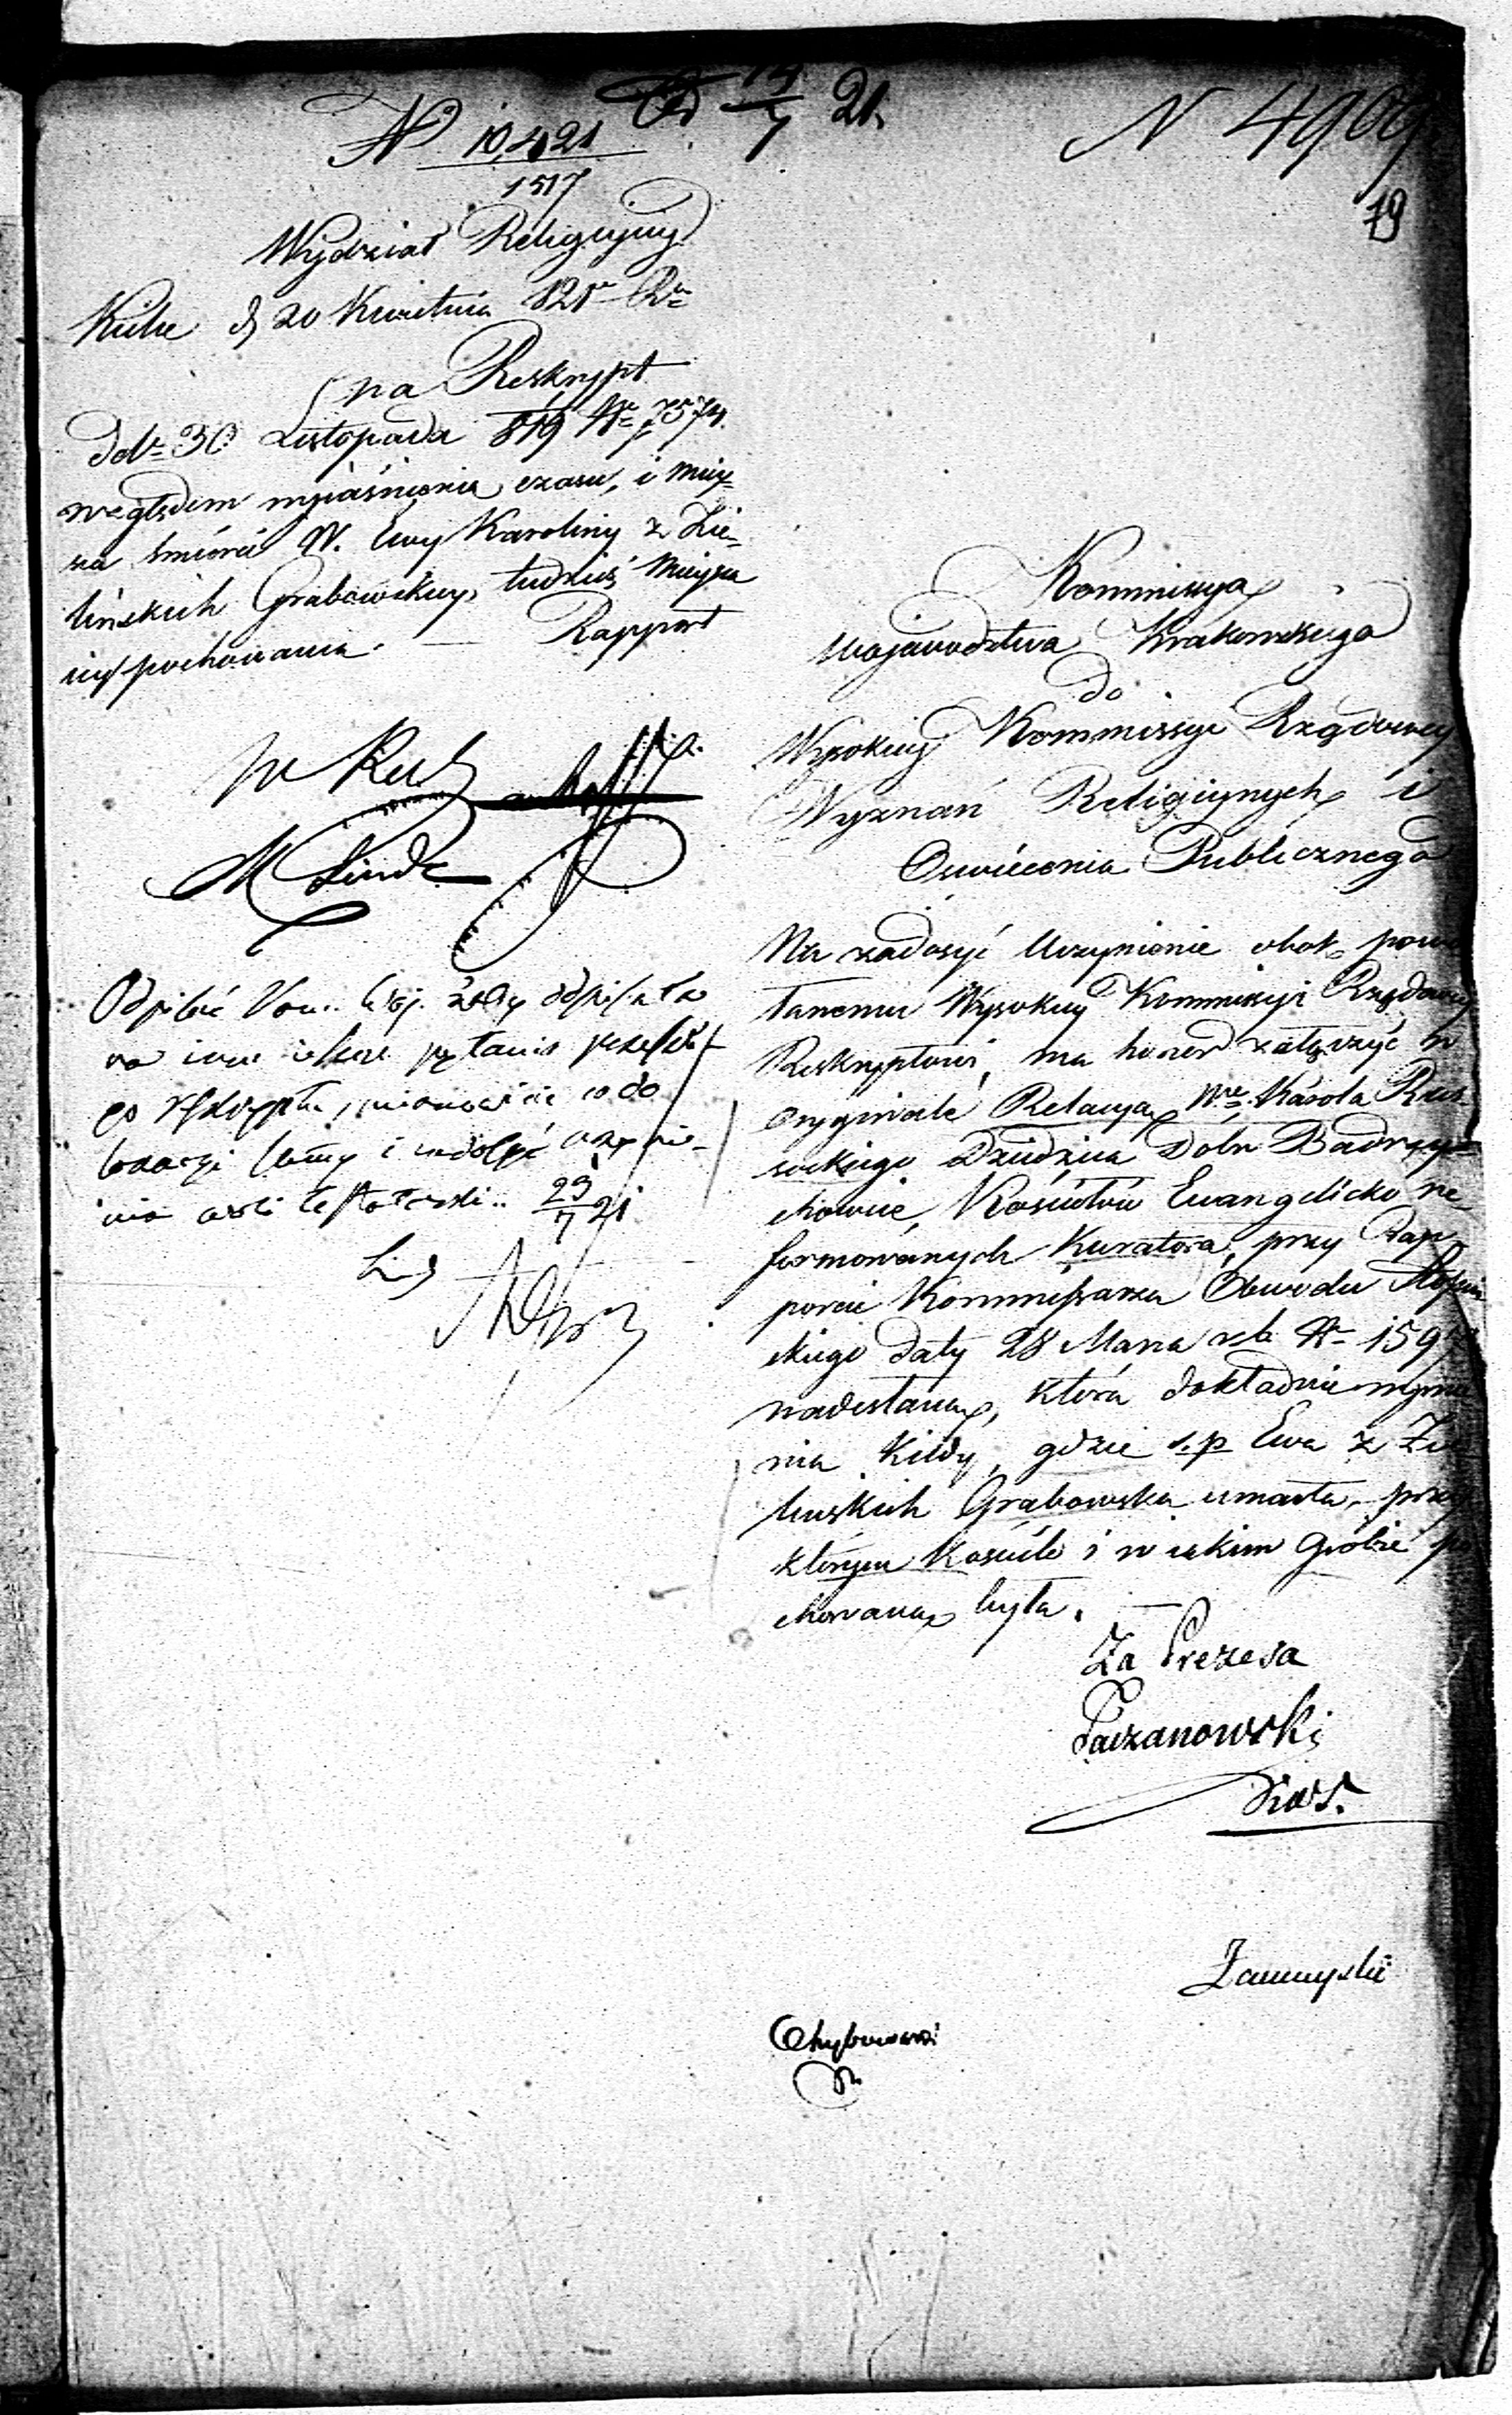 N 10,421
1517
14/7 21.
N 4909.
19
Wydział Religijny
Kielce d 20 Kwietnia 821 Ru
na Reskrypt
ddt 30 Listopada 819 Nr 7574
względem wyiaśnienia czasu, i miey-
sca śmierci W. Ewy Karoliny z Zie-
lińskich Grabowskiey, tudzież mieysca
iey pochowania. — Rapport
M Linde
Odpisać Kom. Woj. żeby odpisała
na inne ieszcze pytania
go reskryptu, mianowicie co do
i zadosyć uczynie-
nia woli testatorski.. 23/7 21
Kommissya
Województwa Krakowskiego
do
Wysokiey Kommissyi Rządowey
Wyznań Religiynych i
Oświecenia Publicznego
Na zadosyć uczynienie obok pow
łanemu Wysokiey Kommissyi Rządowey
Reskryptowi, ma honor załączyć w
oryginale Relacyą Wo Karola Rus
sockiego Dziedzica Dóbr Badrzy-
chowice, Kościołów Ewangelicko re-
formowanych Kuratora, przy Rap-
porcie Kommissarza Obwodu Stopni
ckiego daty 28 Marca rb Nr 159
nadesłaną, która dokładnie wymie
nia kiedy, gdzie s.p Ewa z Zie
lińskich Grabowska umarła, przy
którym kościele i w iakim grobie po
chowaną była. —
Za Prezesa
Paczanowski
Zamuyski